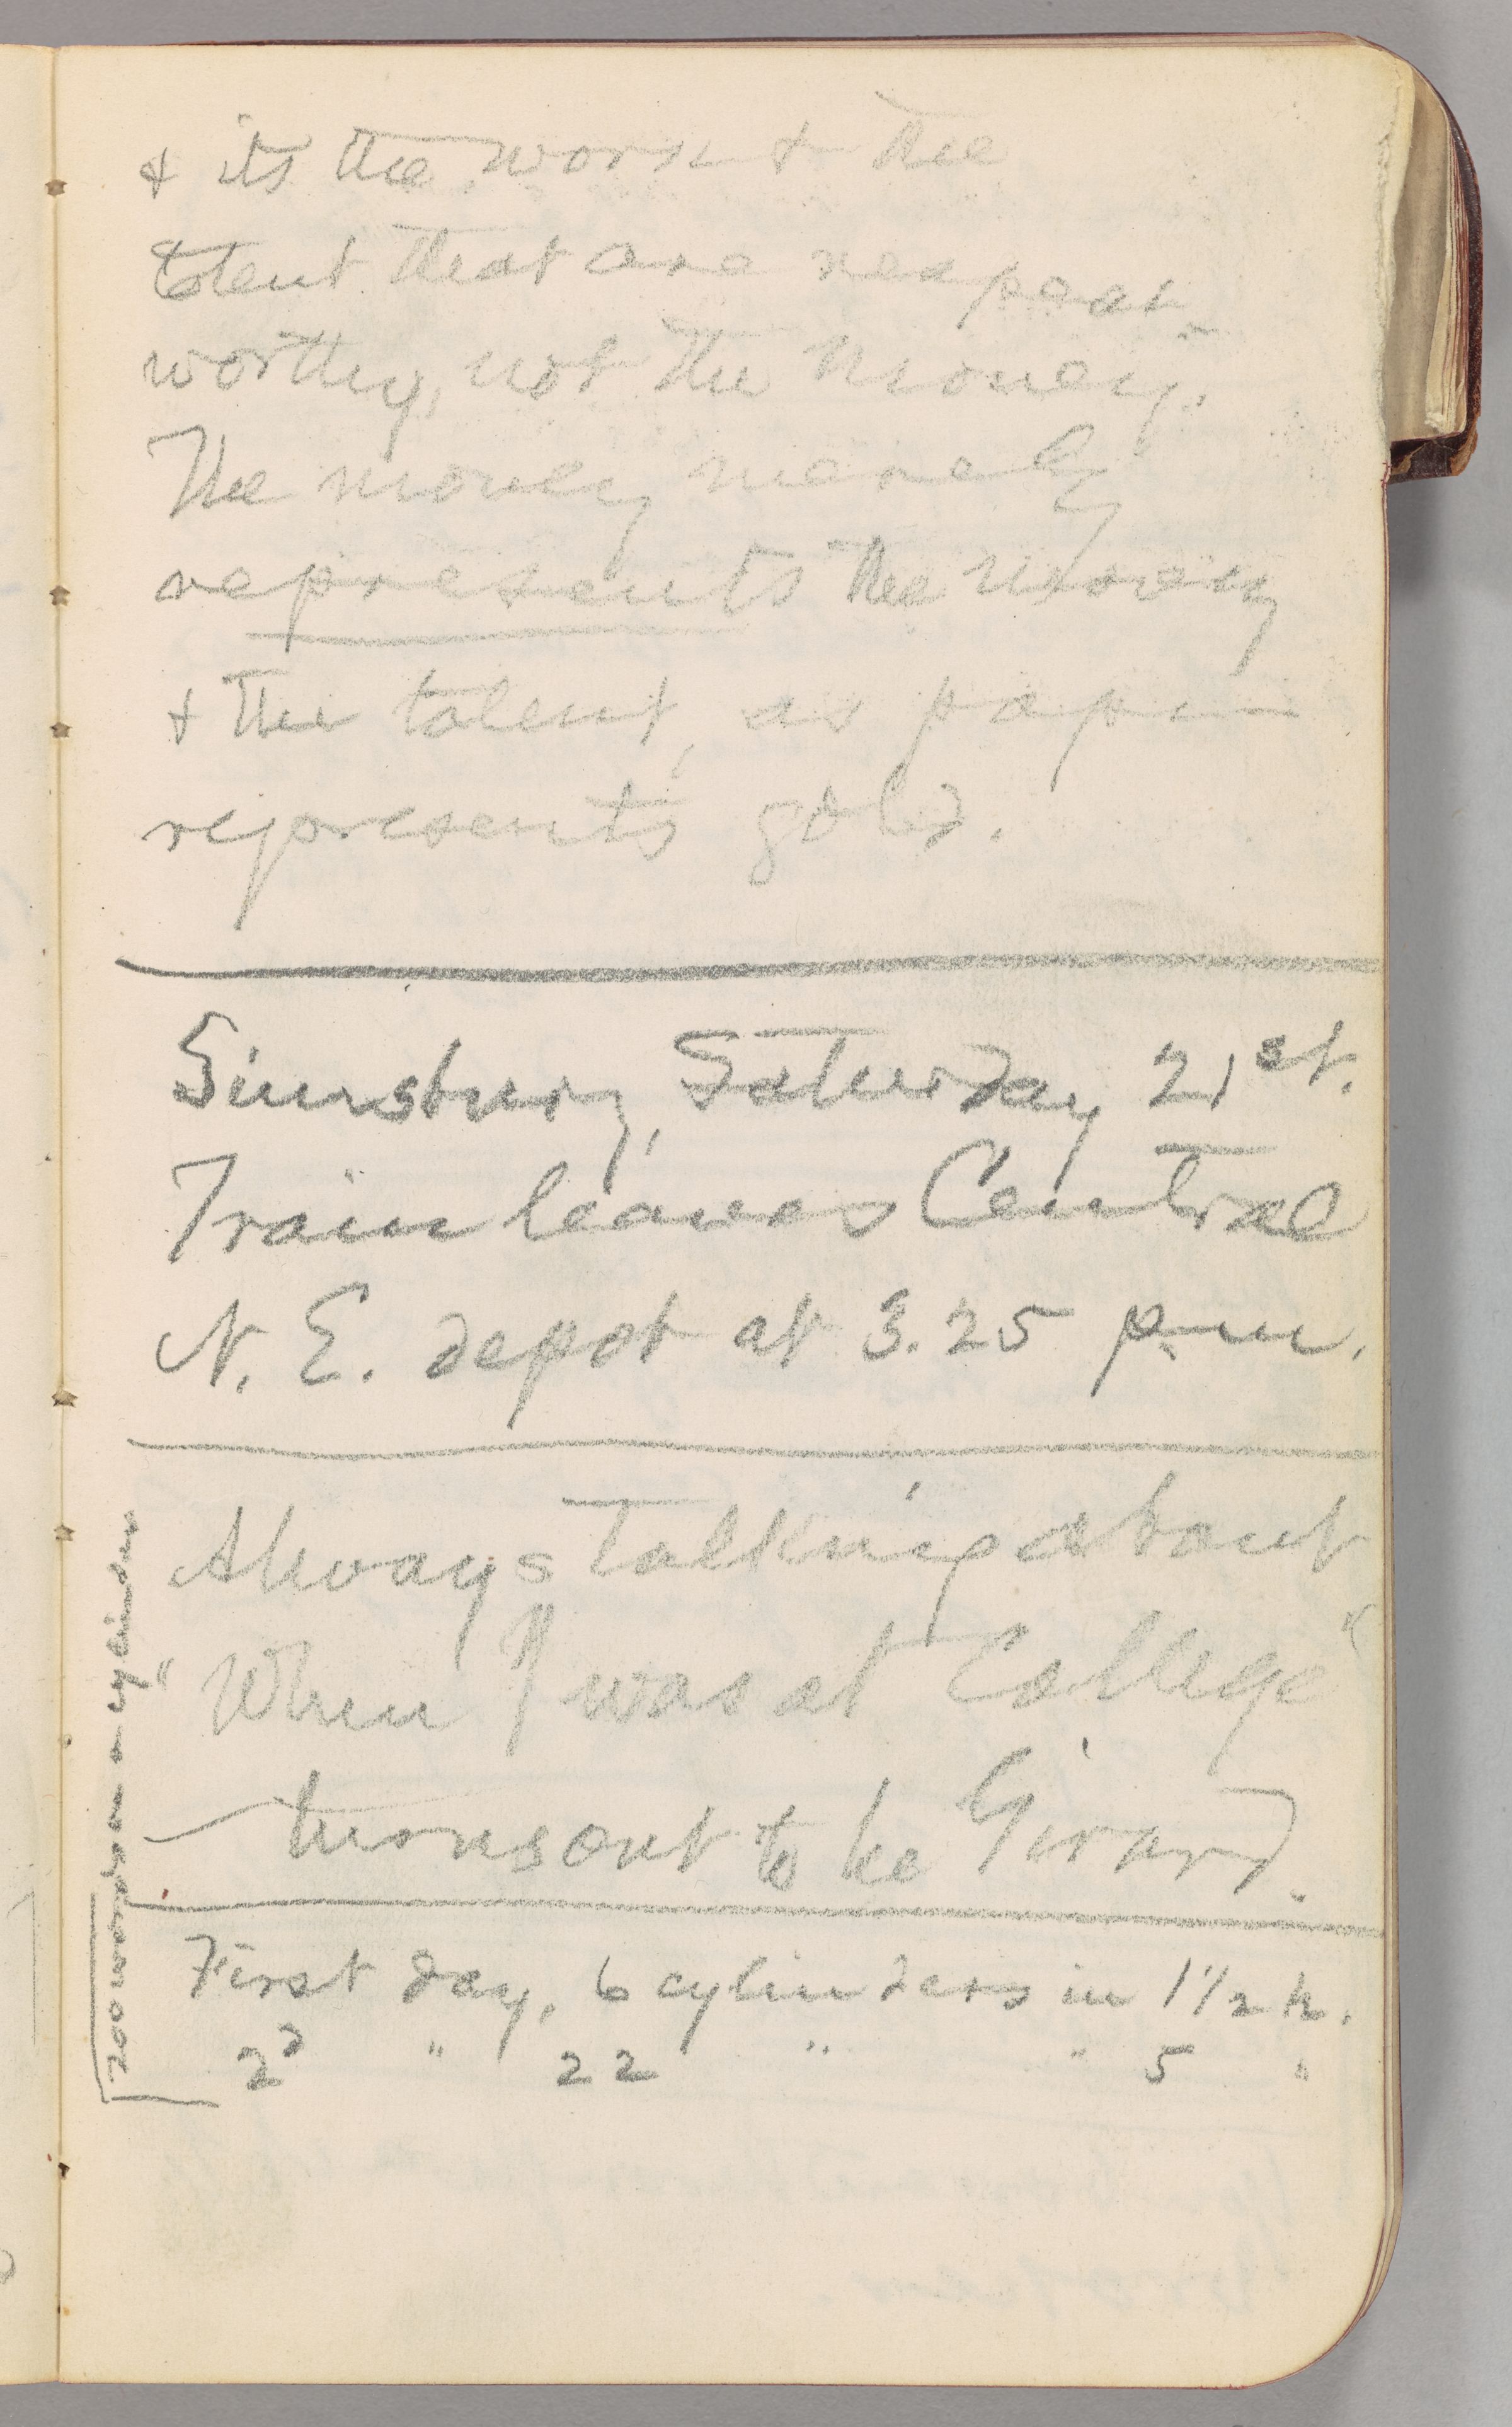 & its the work & the
talent that are respect-
worthy, not the money.
The money merely
represents the money
& the talent, as paper
represents gold.
Simsbury, Saturday 21st.
Train leaves Central
N. E. depot at 3.25 p.m.
Always talking about
"When I was at College"
— turns out to be Girard.
First day, 6 cylinders in 1 1/2 h.
2d " 22 " " 5 "
200 words on a cylinder